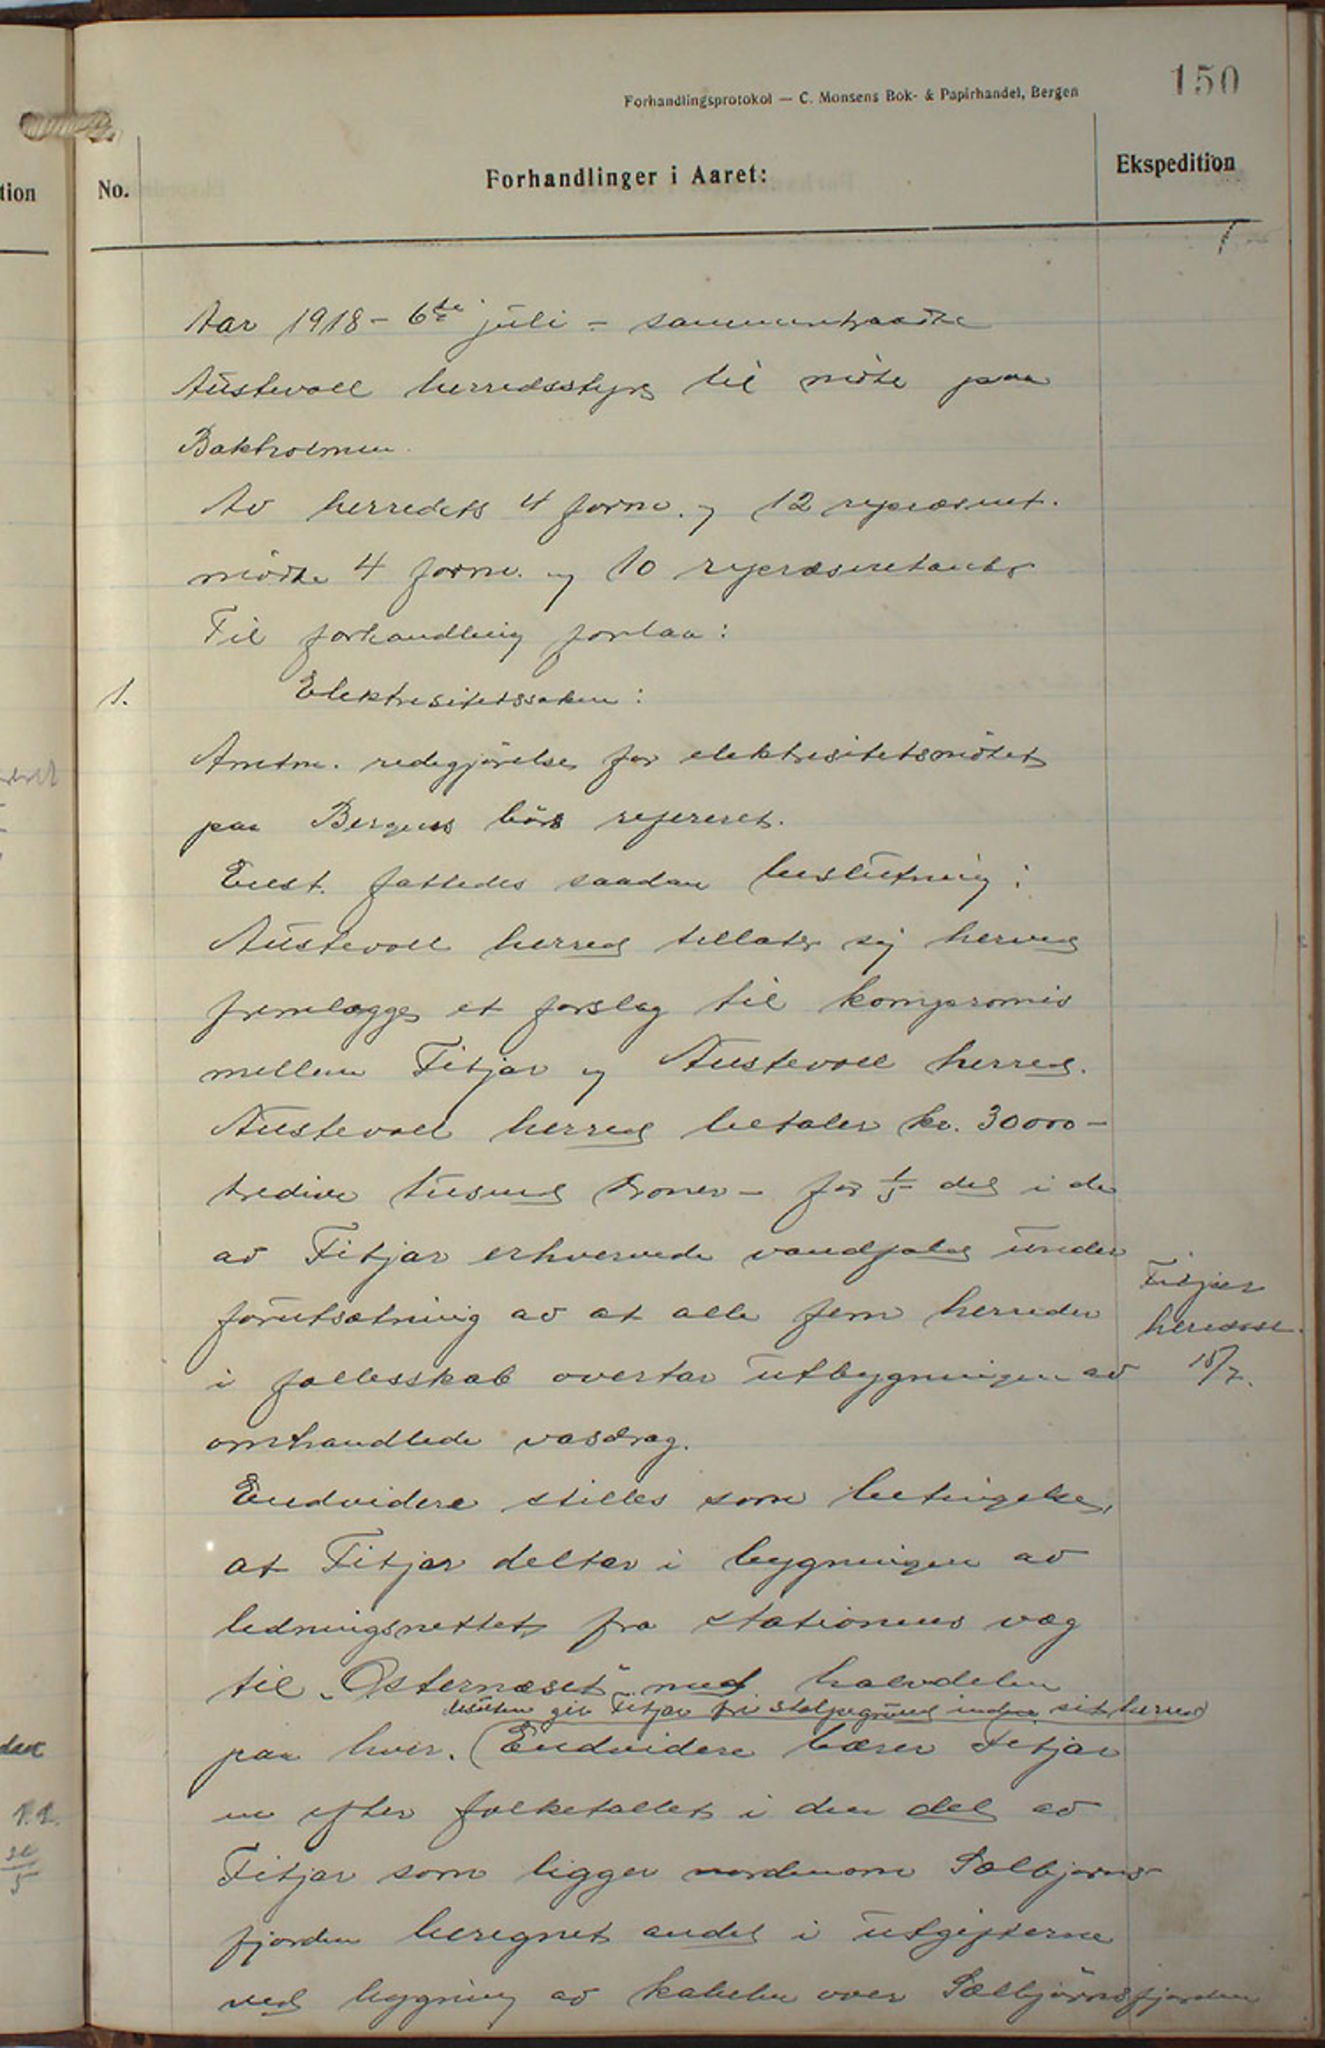 Forhandlingsprotokol — C. Monsens Bok- & Papirhandel, Bergen
150
tion
No.
Forhandlinger i Aaret:
Ekspedition
Aar 1918 - 6te juli - sammentraadte
Austevoll herredsstyre til møte paa
Bakholmen.
Av herredets 4 form. og 12 repræsent.
møtte 4 form. og 10 repræsentanter
Til forhandling forelaa:
1.
Elektresitetssaken:
Amtm. redegjørelse for elektresitetsmøtet
paa Bergens børs refereret.
Enst. fattedes saadan beslutning:
Austevoll herred tillater sig herved
fremlægge et forslag til kompromis
mellem Fitjar og Austevoll herred.
Austevoll herred betaler kr. 30000 -
tredive tusend kroner - for 1/5 del i de
av Fitjar erhvervede vandfald under
forutsætning av at alle fem herreder
i fællesskab overtar utbygningen av
omhandlede vasdrag.
Fitjar
heredsst.
15/7.
Endvidere stilles som betingelse,
at Fitjar deltar i bygningen av
ledningsnettet fra stationens væg
til "Østernæset" med halvdelen
desuten gir Fitjar fri stolpegrund inden sit herred
paa hver. (Endvidere bærer Fitjar
en efter folketallet i den del av
Fitjar som ligger nordenom Sælbjørns-
fjorden beregnet andel i utgifterne
ved bygning av kabelen over Sælbjørnsfjorden